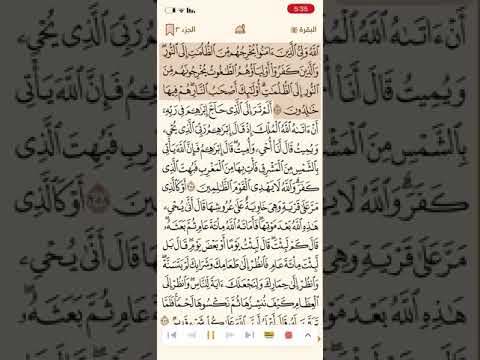 5:35
البقرة
الجزء ٣
ٱللَّهُ وَلِيُّ ٱلَّذِينَ ءَامَنُوا۟ يُخْرِجُهُم مِّنَ ٱلظُّلُمَٰتِ إِلَى ٱلنُّورِ
وَٱلَّذِينَ كَفَرُوٓا۟ أَوْلِيَآؤُهُمُ ٱلطَّٰغُوتُ يُخْرِجُونَهُم مِّنَ
ٱلنُّورِ إِلَى ٱلظُّلُمَٰتِ أُو۟لَٰٓئِكَ أَصْحَٰبُ ٱلنَّارِ هُمْ فِيهَا
خَٰلِدُونَ ٢٥٧ أَلَمْ تَرَ إِلَى ٱلَّذِي حَآجَّ إِبْرَٰهِـۧمَ فِي رَبِّهِۦٓ
أَنْ ءَاتَىٰهُ ٱللَّهُ ٱلْمُلْكَ إِذْ قَالَ إِبْرَٰهِـۧمُ رَبِّيَ ٱلَّذِي يُحْيِۦ
وَيُمِيتُ قَالَ أَنَا۠ أُحْيِۦ وَأُمِيتُ قَالَ إِبْرَٰهِـۧمُ فَإِنَّ ٱللَّهَ يَأْتِي
بِٱلشَّمْسِ مِنَ ٱلْمَشْرِقِ فَأْتِ بِهَا مِنَ ٱلْمَغْرِبِ فَبُهِتَ ٱلَّذِي
كَفَرَ وَٱللَّهُ لَا يَهْدِي ٱلْقَوْمَ ٱلظَّٰلِمِينَ ٢٥٨ أَوْ كَٱلَّذِي
مَرَّ عَلَىٰ قَرْيَةٍ وَهِيَ خَاوِيَةٌ عَلَىٰ عُرُوشِهَا قَالَ أَنَّىٰ يُحْيِۦ
هَٰذِهِ ٱللَّهُ بَعْدَ مَوْتِهَا فَأَمَاتَهُ ٱللَّهُ مِا۟ئَةَ عَامٍ ثُمَّ بَعَثَهُۥ
قَالَ كَمْ لَبِثْتَ قَالَ لَبِثْتُ يَوْمًا أَوْ بَعْضَ يَوْمٍ قَالَ بَل
لَّبِثْتَ مِا۟ئَةَ عَامٍ فَٱنظُرْ إِلَىٰ طَعَامِكَ وَشَرَابِكَ لَمْ يَتَسَنَّهْ
وَٱنظُرْ إِلَىٰ حِمَارِكَ وَلِنَجْعَلَكَ ءَايَةً لِّلنَّاسِ وَٱنظُرْ إِلَى
ٱلْعِظَامِ كَيْفَ نُنشِزُهَا ثُمَّ نَكْسُوهَا لَحْمًا فَلَمَّا